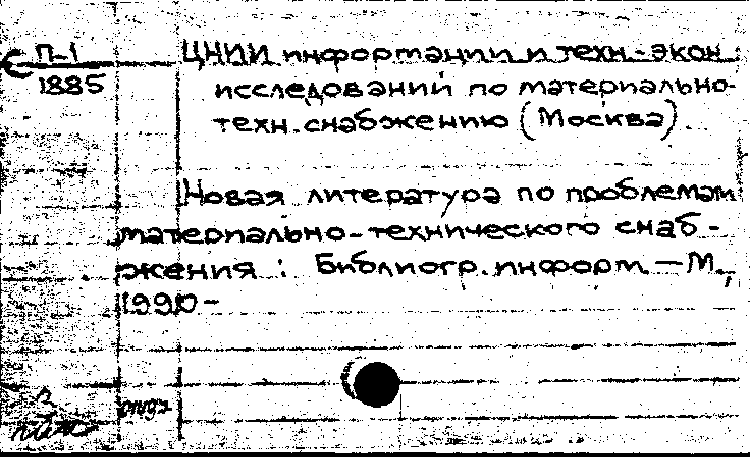 С П-1
1885
ЦНИИ информации и техн.-экон.
исследований по материально-
техн. снабжению (Москва).
Новая литература по проблемам
материально-технического снаб-
жения : Библиогр. информ. — М.,
1990 -
отдз